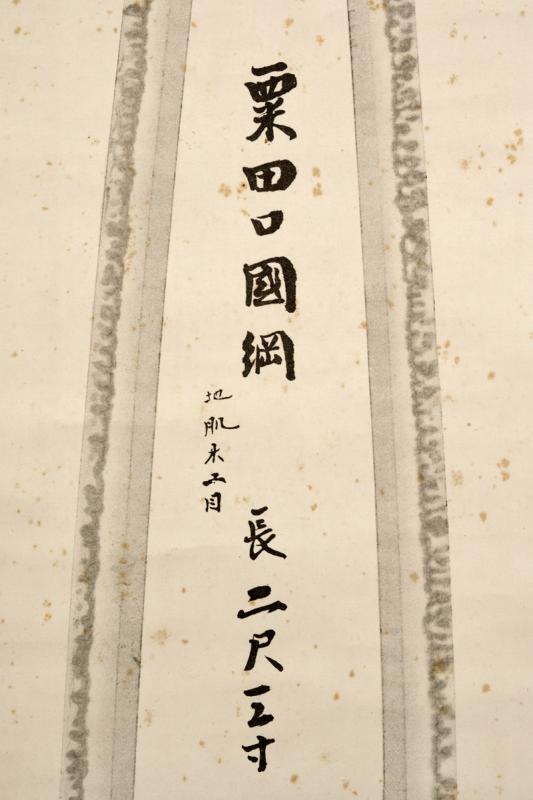 粟田口國綱 長二尺三寸
地肌杢目